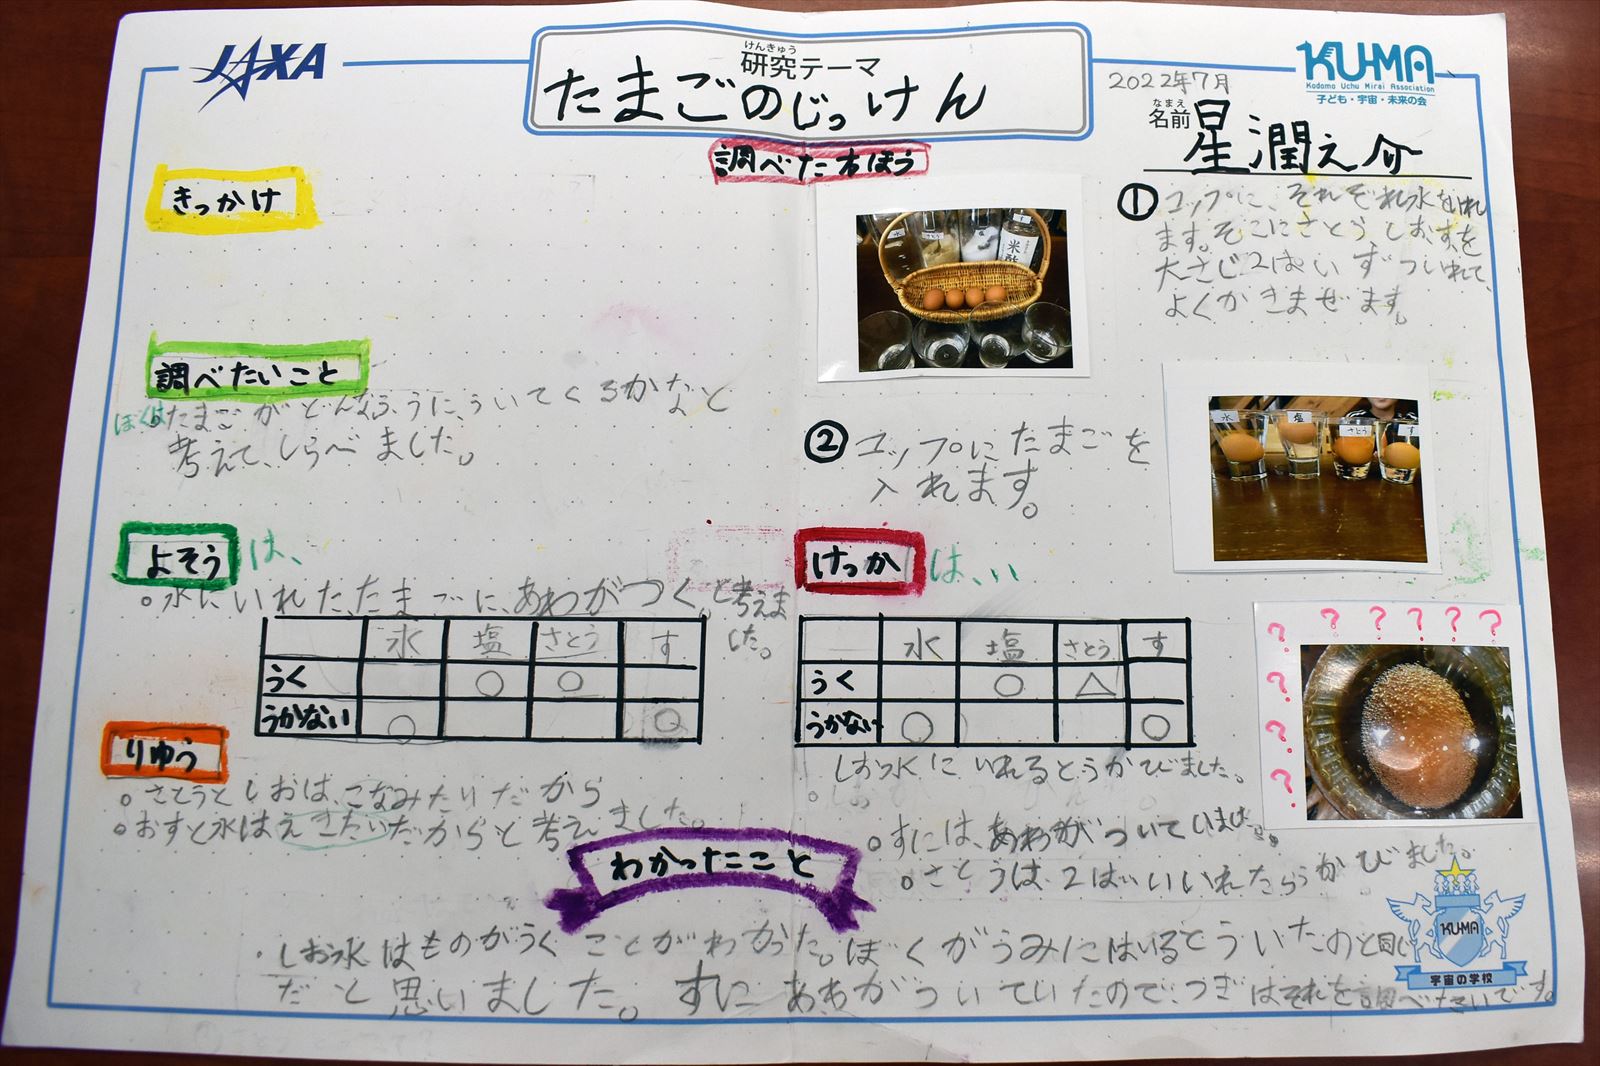 JAXA
けんきゅう
研究テーマ
たまごのじっけん
2022年7月
KU-MA
Kodomo Uchu Mirai Association
子ども・宇宙・未来の会
なまえ
名前
星潤之介
きっかけ
調べたいこと
ぼくはたまごがどんなふうに、ういてくるかなと
考えて、しらべました。
よそうは、
。水にいれた、たまごに、あわがつく。と考えま
した。
水 塩 さとう す
うく ○ ○
うかない ○ ○
りゆう
。さとうとしおは、こなみたりだから
。おすと水はえきたいだからと考えました。
調べたほうほう
①コップに、それぞれ水をいれ
ます。そこにさとう しお、すを
大さじ2はいずついれて、
よくかきまぜます。
水
さとう
塩
す
米酢
②コップにたまごを
入れます。
水
塩
さとう
す
けっかは、い
水 塩 さとう す
うく ○ △
うかない ○ ○
? ? ? ? ? ?
?
?
?
しお水にいれるとうかびました。
。すには、あわがついていました。
。さとうは、2はいいれたらうかびました。
わかったこと
・しお水はものがうくことがわかった。ぼくがうみにはいるとういたのと同じ
だと思いました。すにあわがついていたので、つぎはそれを調べたいです。
KU-MA
宇宙の学校